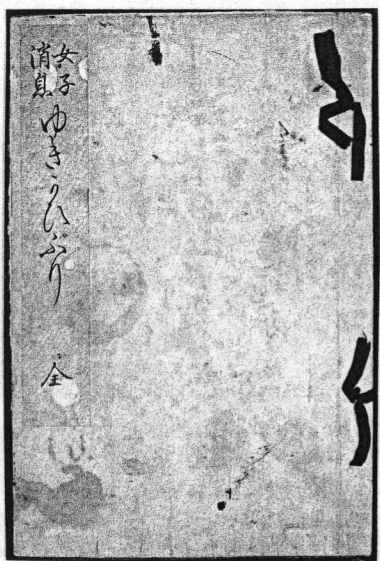 女子
消息
ゆきかひぶり
全